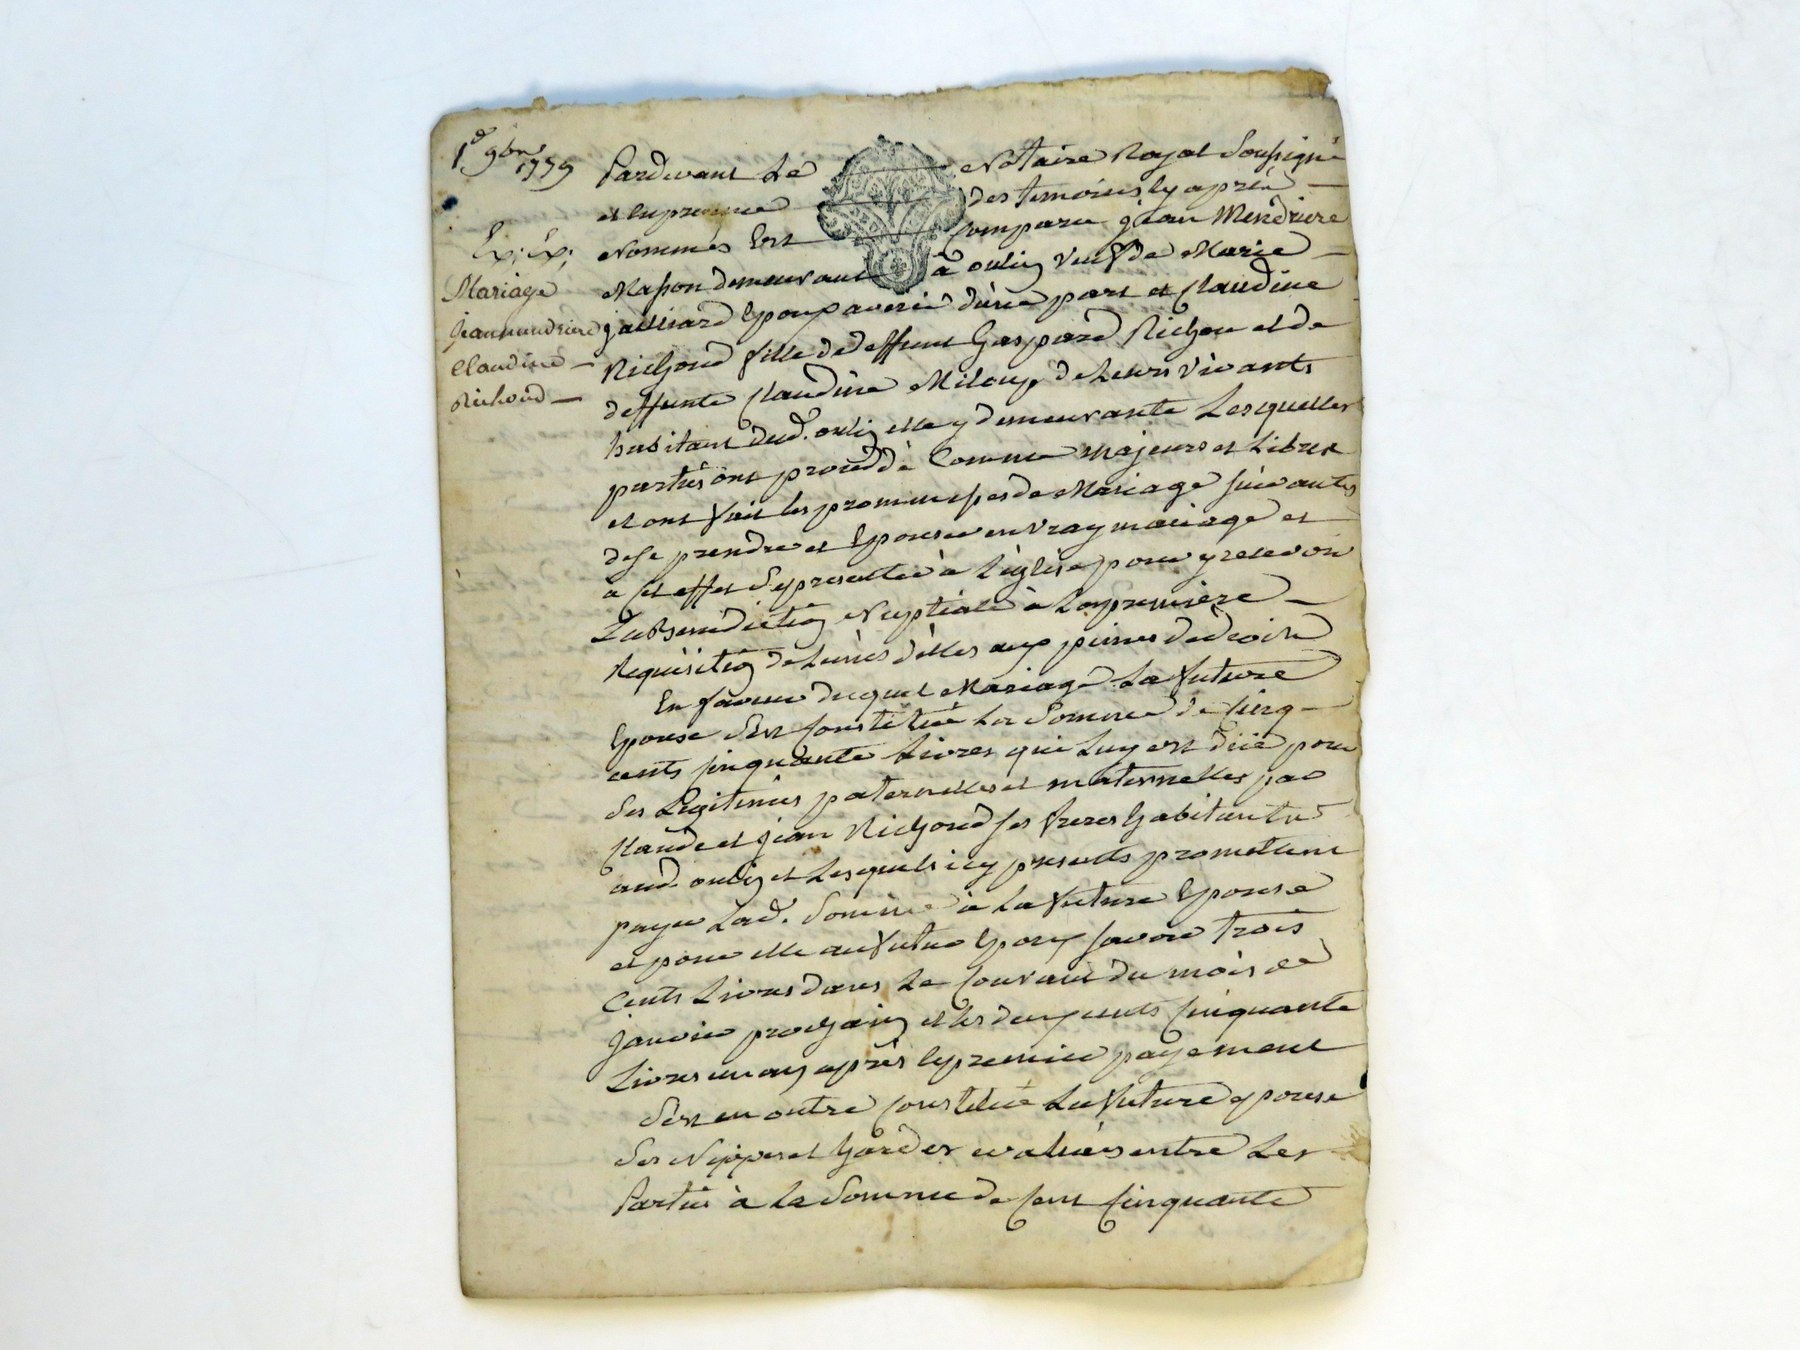 1er 9bre 1779
Ex; Ex;
Mariage
jean mendriere
Claudine
Richoud
Pardevant Le Notaire Royal soussigné
et en presence des temoins cy après
Nommés est Comparu jean Mendriere
Masson demeurant à oulin veuf de Marie
gailliard Epoux averir d'une part et Claudine
Richoud fille de deffunt Gaspard Richou et de
deffunte Claudine Miloux de Leurs Vivants
habitant dud. oulin elle y demeurante Lesquelles
parties ont procedé Comme majeurs et Libres
et ont fait les promnesses de Mariage suivantes
de se prendre et Epouser en vray mariage et
à cet effet se presenter à L'église pour y recevoir
La Benediction Nuptiale à La premiere
Requisition de L'unes d'elles aux peines de droit
En faveur duquel Mariage La future
Epouse s'est Constituée La somme de Cinq
cents Cinquante Livres qui Luy est düe pour
ses Legitimes paternelles et maternelles par
Claude et jean Richoud ses freres habitants
aud. oulin et Lesquels icy presents promettent
payer Lad. somme à La future Epouse
et pour elle au futur Epoux savoir trois
Cents Livres dans Le Courant du mois de
janvier prochain et les deux cents Cinquante
Livres un an après le premier payement
S'est en outre Constituée La future epouse
ses Nippes et hardes evalués entre Les
Parties à La Somme de Cent Cinquante